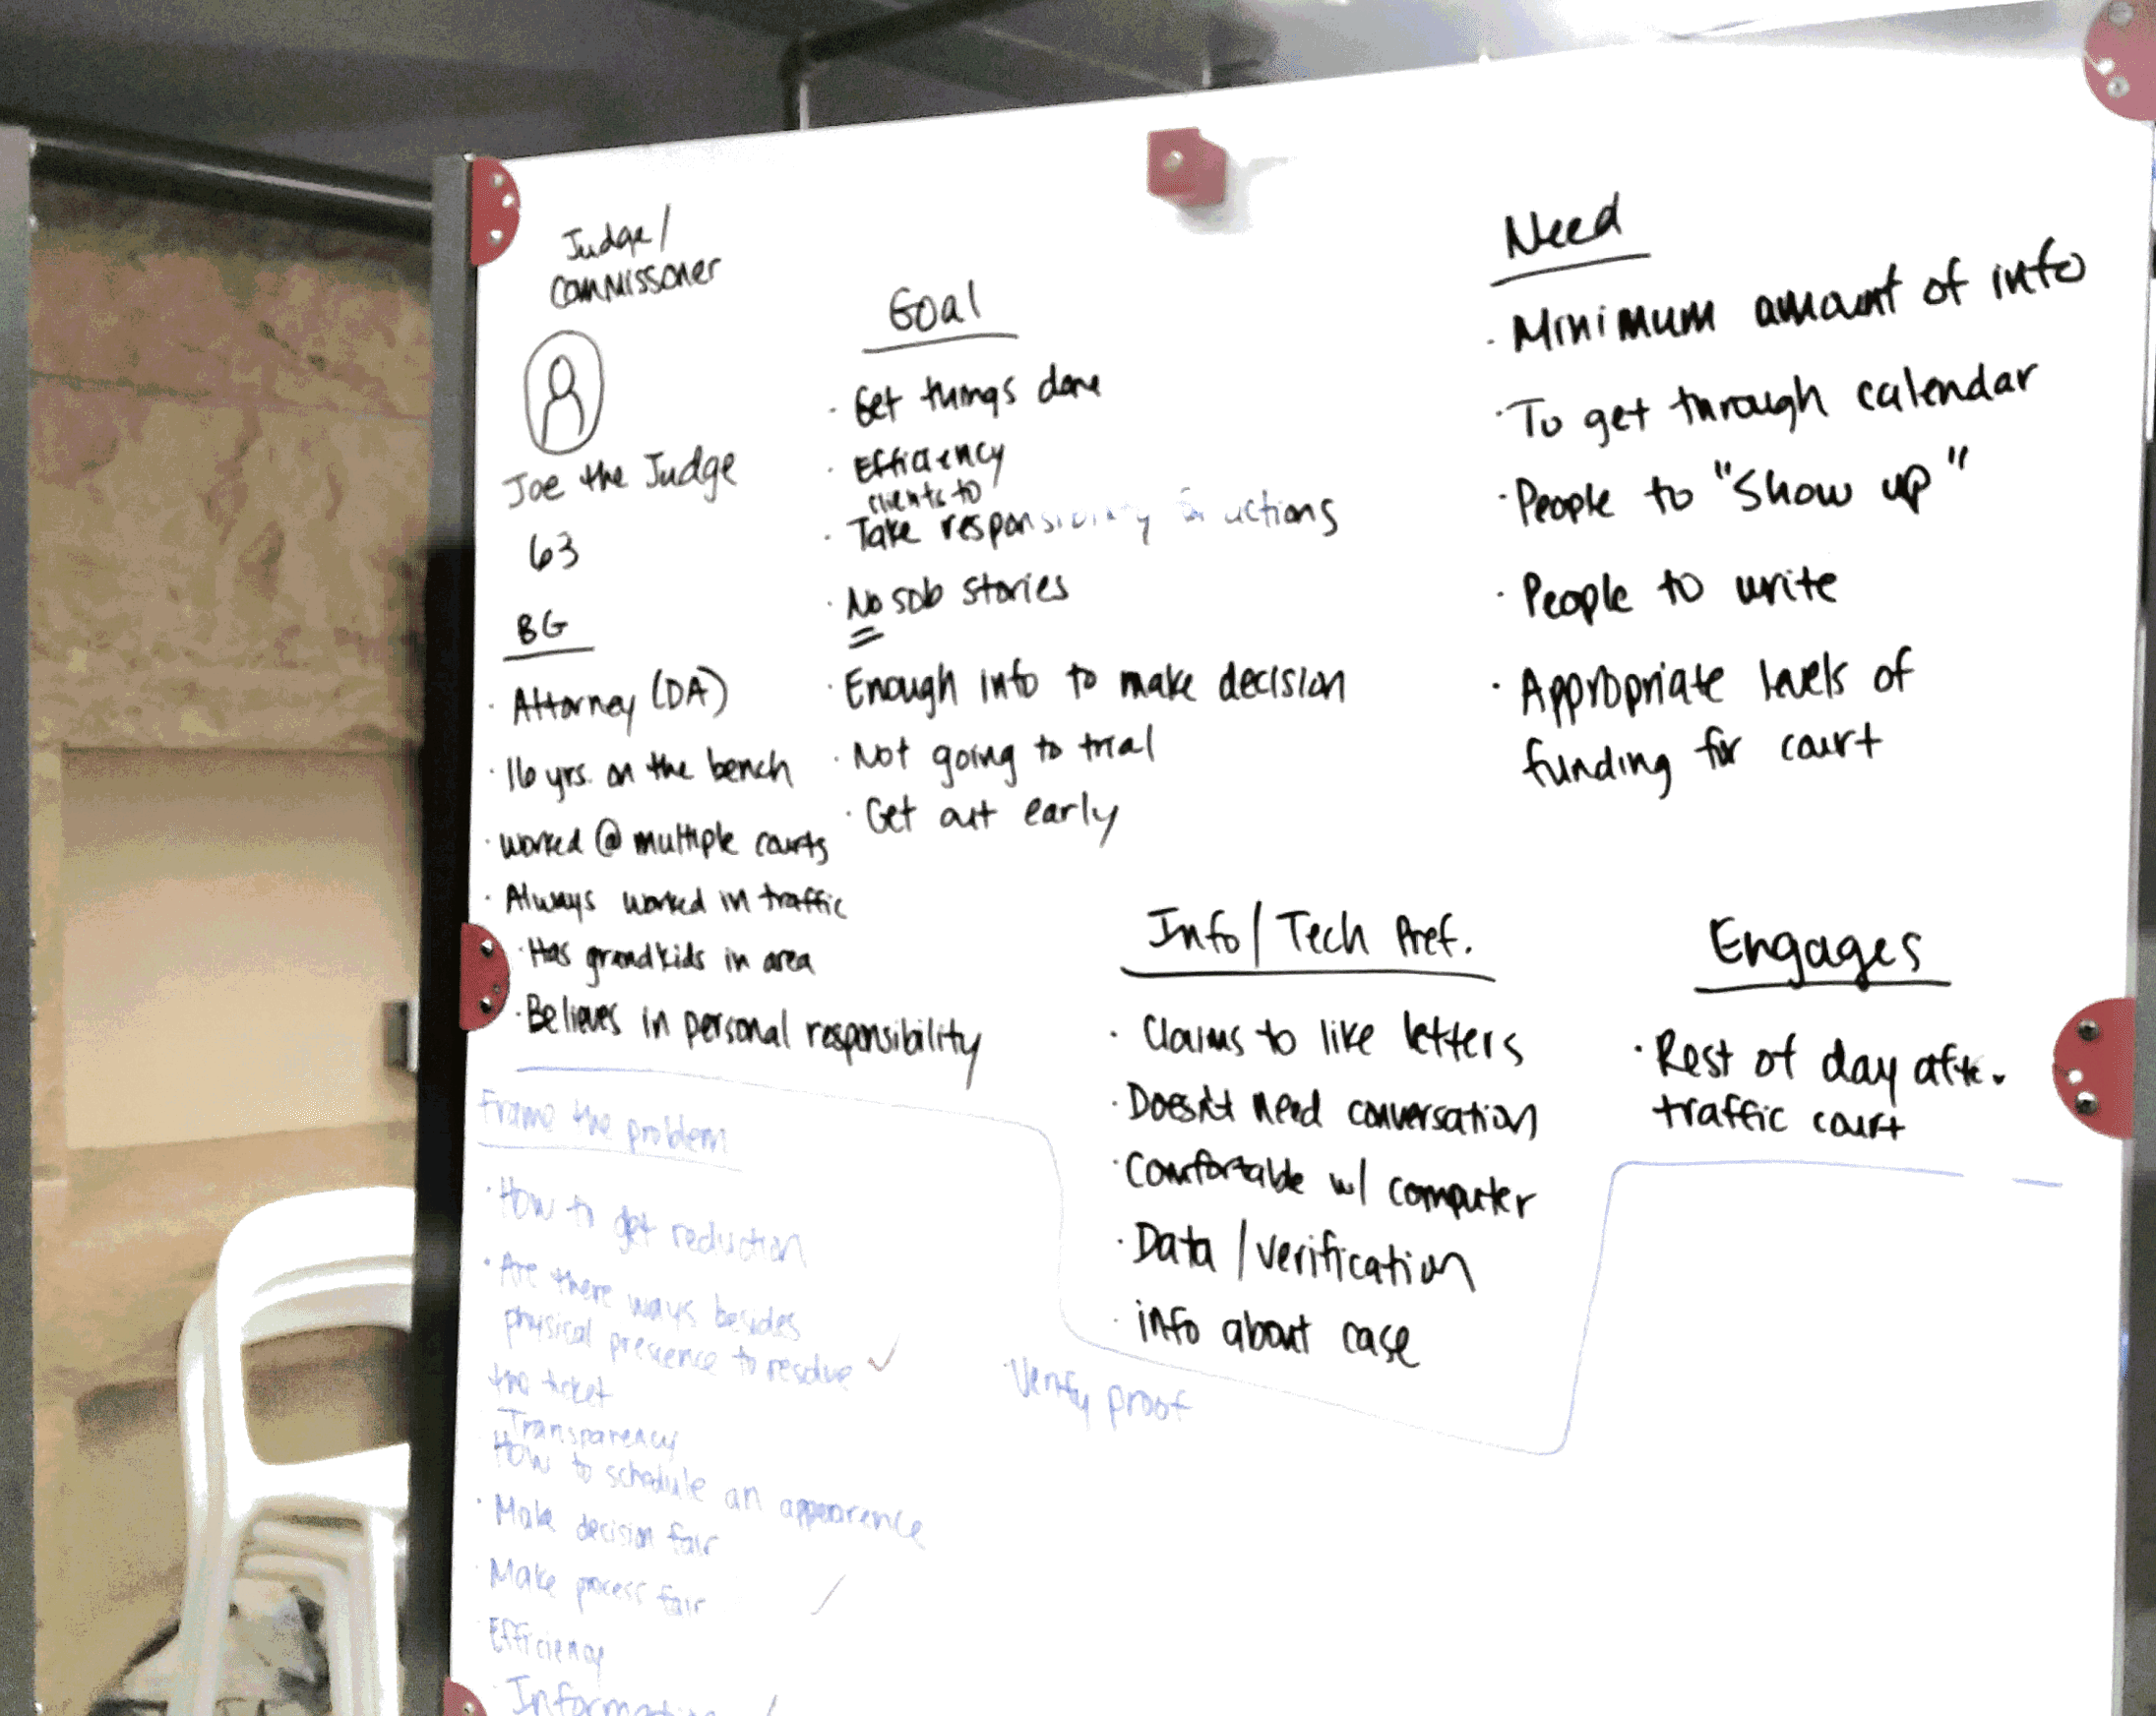 Judge/
Commissoner
Joe the Judge
63
BG
· Attorney (DA)
· 16 yrs. on the bench
· worked @ multiple courts
· Always worked in traffic
· Has grandkids in area
· Believes in personal responsibility
Goal
· Get things done
· Efficiency
clients to
· Take responsibility actions
· No sob stories
· Enough info to make decision
· Not going to trial
· Get out early
Need
· Minimum amount of info
· To get through calendar
· People to "show up"
· People to write
· Appropriate levels of
funding for court
Info/Tech Pref.
· Claims to like letters
· Doesn't need conversation
· Comfortable w/ computer
· Data/verification
· info about case
Engages
· Rest of day after
traffic court
Frame the problem
· How to get reduction
· Are there ways besides
physical presence to resolve ✓
ticket
Transparency
How to schedule an appearence
· Make decision fair
· Make process fair
Efficiency
· Verify proof